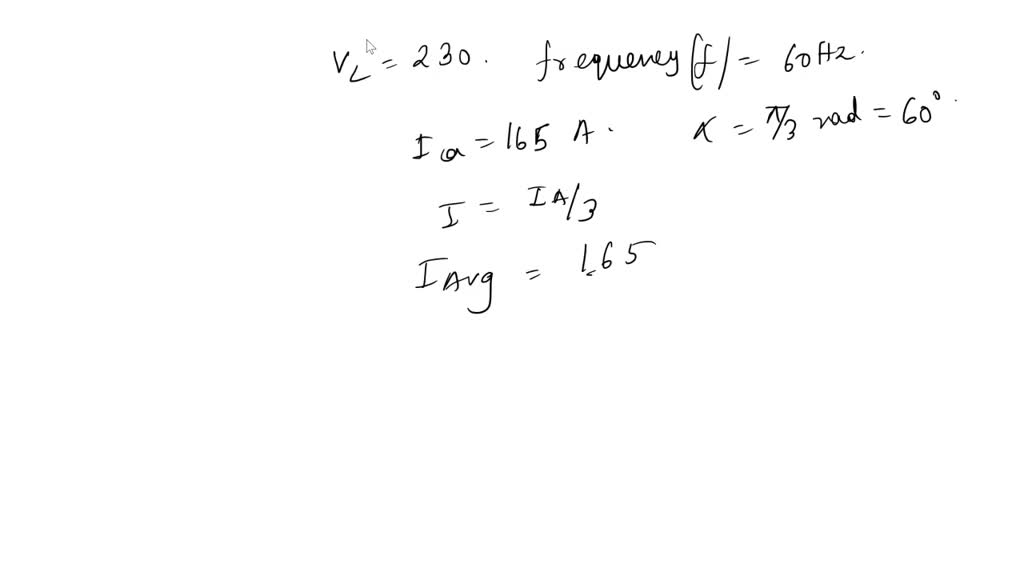 V_L = 230. frequency (f) = 60Hz.
I_a = 165 A. α = π/3 rad = 60°.
I = IA/3
I_Avg = 165